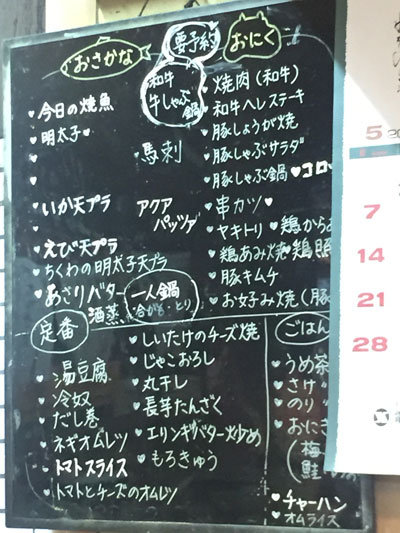 おさかな
要予約
和牛
牛しゃぶ
鍋
おにく
今日の焼魚
明太子
馬刺
いか天プラ
アクア
パッツァ
えび天プラ
ちくわの明太子天プラ
あさりバター
酒蒸
一人鍋
焼肉(和牛)
和牛ヘレステーキ
豚しょうが焼
豚しゃぶサラダ
豚しゃぶ鍋 コロッ
串カツ
ヤキトリ 鶏から
鶏あみ焼 鶏照
豚キムチ
お好み焼(豚
定番
湯豆腐
冷奴
だし巻
ネギオムレツ
トマトスライス
トマトとチーズのオムレツ
しいたけのチーズ焼
じゃこおろし
丸干し
長芋たんざく
エリンギバター炒め
もろきゅう
ごはん
うめ茶
さけ
のり
おにぎ
(梅
鮭
チャーハン
オムライス
5
20
7
14
21
28